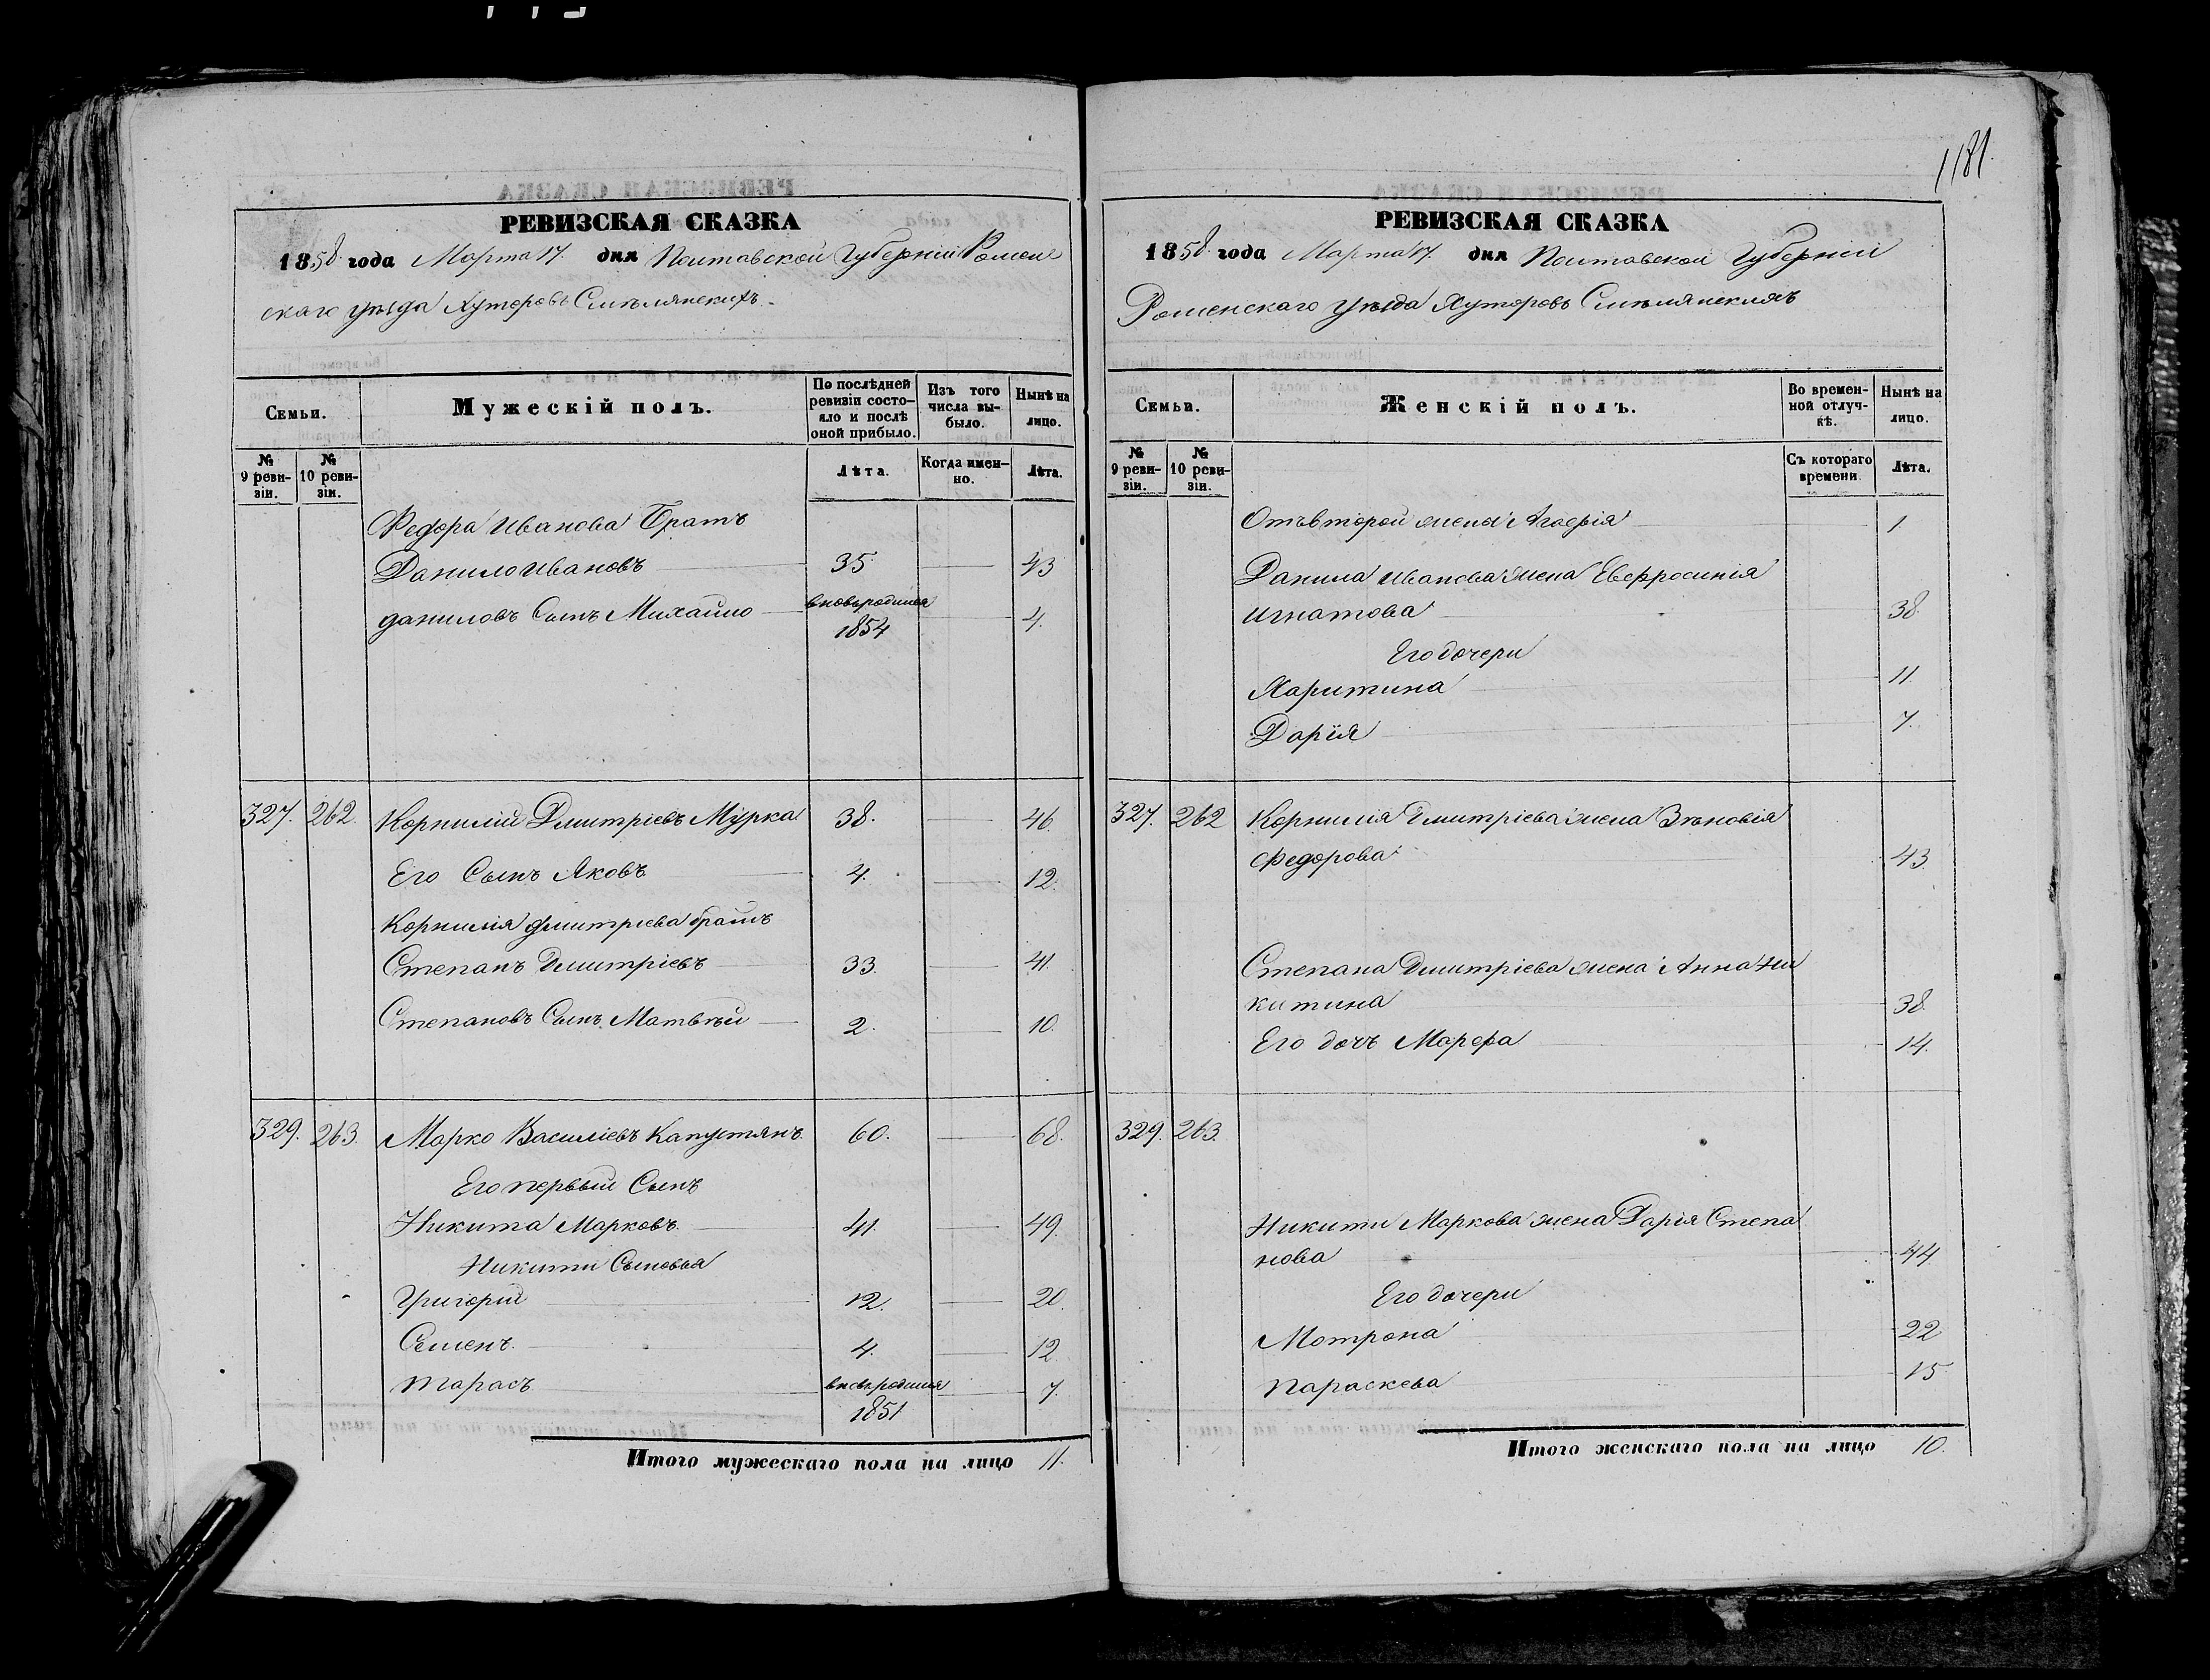 1181.
РЕВИЗСКАЯ СКАЗКА
1858 года Марта 17. дня Полтавской Губерніи Ромен
скаго уѣзда Хуторовъ Смѣлянскихъ.
Семьи.
Мужескій полъ.
По послѣдней ревизіи состояло и послѣ оной прибыло.
Изъ того числа выбыло.
Нынѣ на лицо.
№ 9 ревизіи.
№ 10 ревизіи.
Лѣта.
Когда именно.
Лѣта.
Федора Иванова Братъ
Данило Ивановъ 35 43
Даниловъ Сынъ Михайло вновьродился 1854 4.
327. 262. Корнилій Дмитріевъ Мурка 38. 46.
Его Сынъ Яковъ 4. 12.
Корнилія Дмитріева братъ
Степанъ Дмитріевъ 33. 41.
Степановъ Сынъ Матвѣй 2. 10.
329. 263. Марко Василіевъ Капустянъ 60. 68.
Его первый Сынъ
Никита Марковъ 41. 49.
Никиты Сыновья
Григорій 12. 20.
Семенъ 4. 12.
Тарасъ вновьродился 1851 7.
Итого мужескаго пола на лицо 11.
РЕВИЗСКАЯ СКАЗКА
1858 года Марта 17. дня Полтавской Губерніи
Роменскаго уѣзда Хуторовъ Смѣлянскихъ
Семьи.
Женскій полъ.
Во временной отлучкѣ.
Нынѣ на лицо.
№ 9 ревизіи.
№ 10 ревизіи.
Съ котораго времени.
Лѣта.
Отъ второй жены Агафія 1
Данила Иванова жена Евфросинія
Игнатова 38
Его дочери
Харитина 11.
Дарія 7.
327. 262 Корнилія Дмитріева жена Зѣновія
Федорова 43.
Степана Дмитріева жена Анна Ни
китина 38.
Его дочь Марфа 14.
329. 263.
Никиты Маркова жена Дарія Степа
нова 44
Его дочери
Мотрона 22
Параскева 15
Итого женскаго пола на лицо 10.